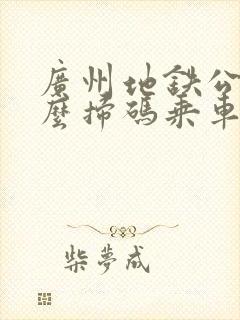 廣州地鉄公
麼掃碼乗車
柴夢成